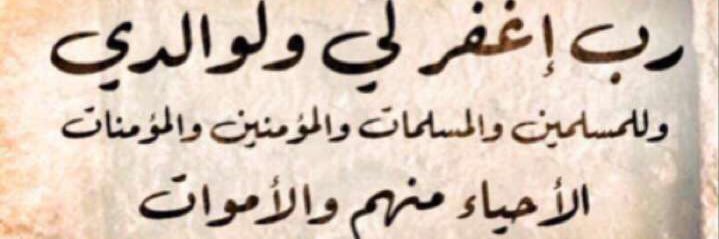 رب إغفر لي ولوالدي
وللمسلمين والمسلمات والمؤمنين والمؤمنات
الأحياء منهم والأموات